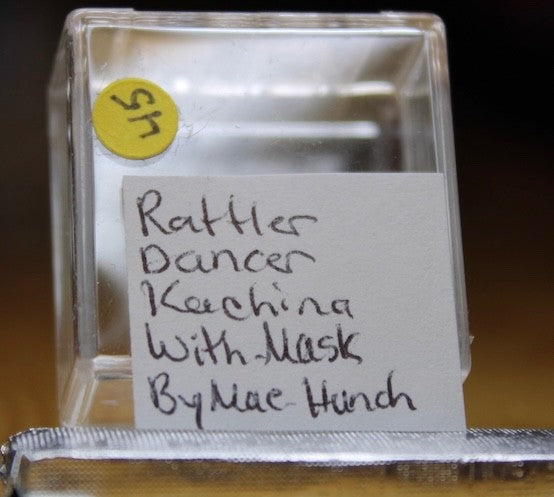 45
Rattler
Dancer
Kachina
With Mask
By Mae Hunch